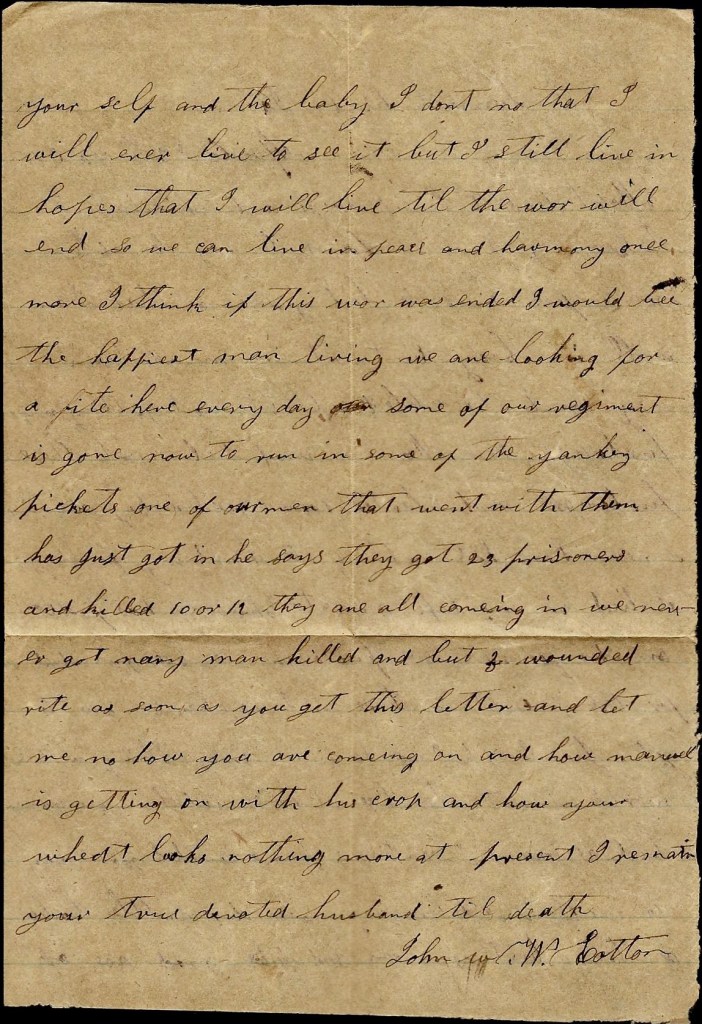 your self and the baby I dont no that I
will ever live to see it but I still live in
hopes that I will live til the wor will
end so we can live in peace and harmony once
more I think if this wor was ended I would bee
the happiest man living we are looking for
a fite here every day some of our regiment
is gone now to run in some of the yankey
pickets one of our men that went with them
has just got in he says they got 23 prisoners
and killed 10 or 12 they are all comeing in we nev-
er got nary man killed and but wounded
rite as soon as you get this letter and let
me no how you are comeing on and how manuel
is getting on with his crop and how your
wheat looks nothing more at present I remain
your true devoted husband til death
John W. Cotton